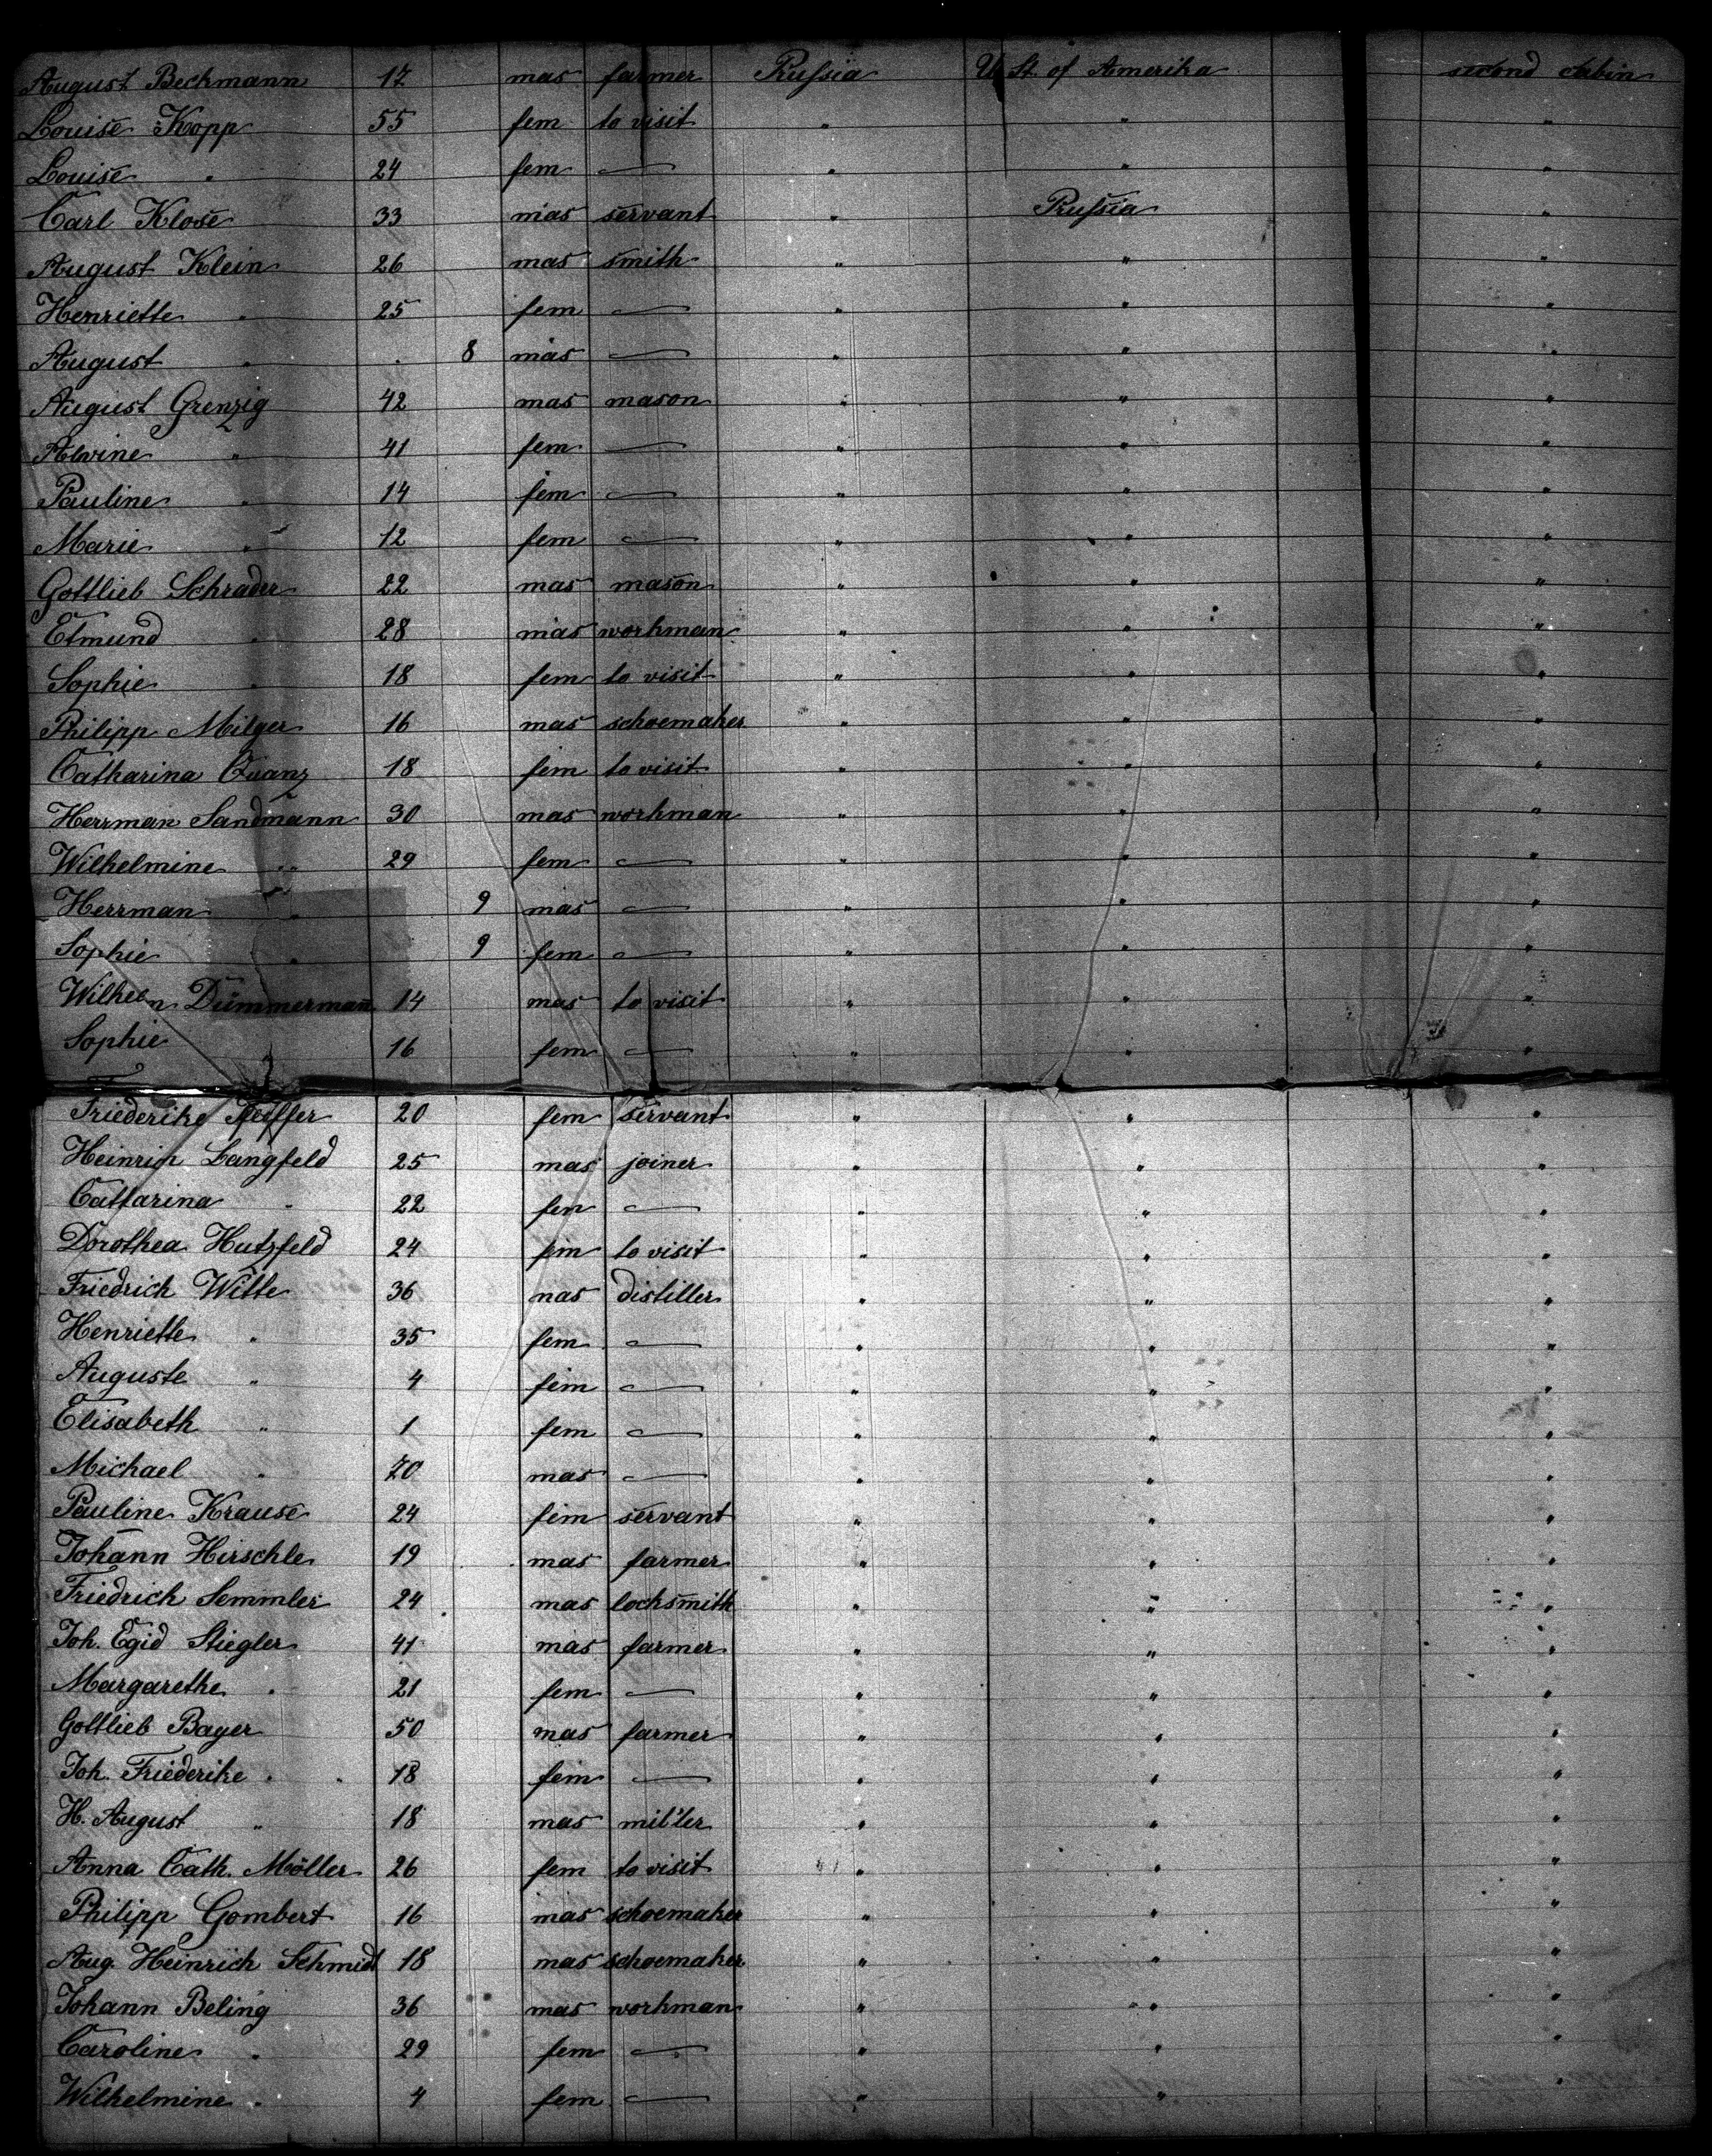 August Beckmann 17 mas farmer Prussia U. St. of Amerika second cabin
Louise Kopp 55 fem to visit " " "
Louise " 24 fem — " " "
Carl Klose 33 mas servant " Prussia "
August Klein 26 mas smith " " "
Henriette " 25 fem — " " "
August " " 8 mas — " " "
August Grenzig 42 mas mason " " "
Alwine " 41 fem — " " "
Pauline " 14 fem — " " "
Marie " 12 fem — " " "
Gottlieb Schrader 22 mas mason " " "
Etmund " 28 mas workman " " "
Sophie " 18 fem to visit " " "
Philipp Milger 16 mas schoemaker " " "
Catharina Quanz 18 fem to visit " " "
Herrman Sandmann 30 mas workman " " "
Wilhelmine " 29 fem — " " "
Herrman " 9 mas — " " "
Sophie " 9 fem — " " "
Wilhelm Dümmerman 14 mas to visit " " "
Sophie 16 fem — " " "
Friederike Pfeiffer 20 fem servant " " "
Heinrich Langfeld 25 mas joiner " " "
Cattarina " 22 fem — " " "
Dorothea Hutzfeld 24 fem to visit " " "
Friedrich Witte 36 mas distiller " " "
Henriette " 35 fem — " " "
Auguste " 4 fem — " " "
Elisabeth " 1 fem — " " "
Michael " 70 mas — " " "
Pauline Krause 24 fem servant " " "
Johann Hirschle 19 mas farmer " " "
Friedrich Semmler 24 mas locksmith " " "
Joh. Egid Stiegler 41 mas farmer " " "
Margarethe " 21 fem — " " "
Gottlieb Bayer 50 mas farmer " " "
Joh. Friederike " 18 fem — " " "
H. August " 18 mas miller " " "
Anna Cath. Möller 26 fem to visit " " "
Philipp Gombert 16 mas schoemaker " " "
Aug. Heinrich Schmidt 18 mas schoemaker " " "
Johann Beling 36 mas workman " " "
Caroline " 29 fem — " " "
Wilhelmine " 4 fem — " " "